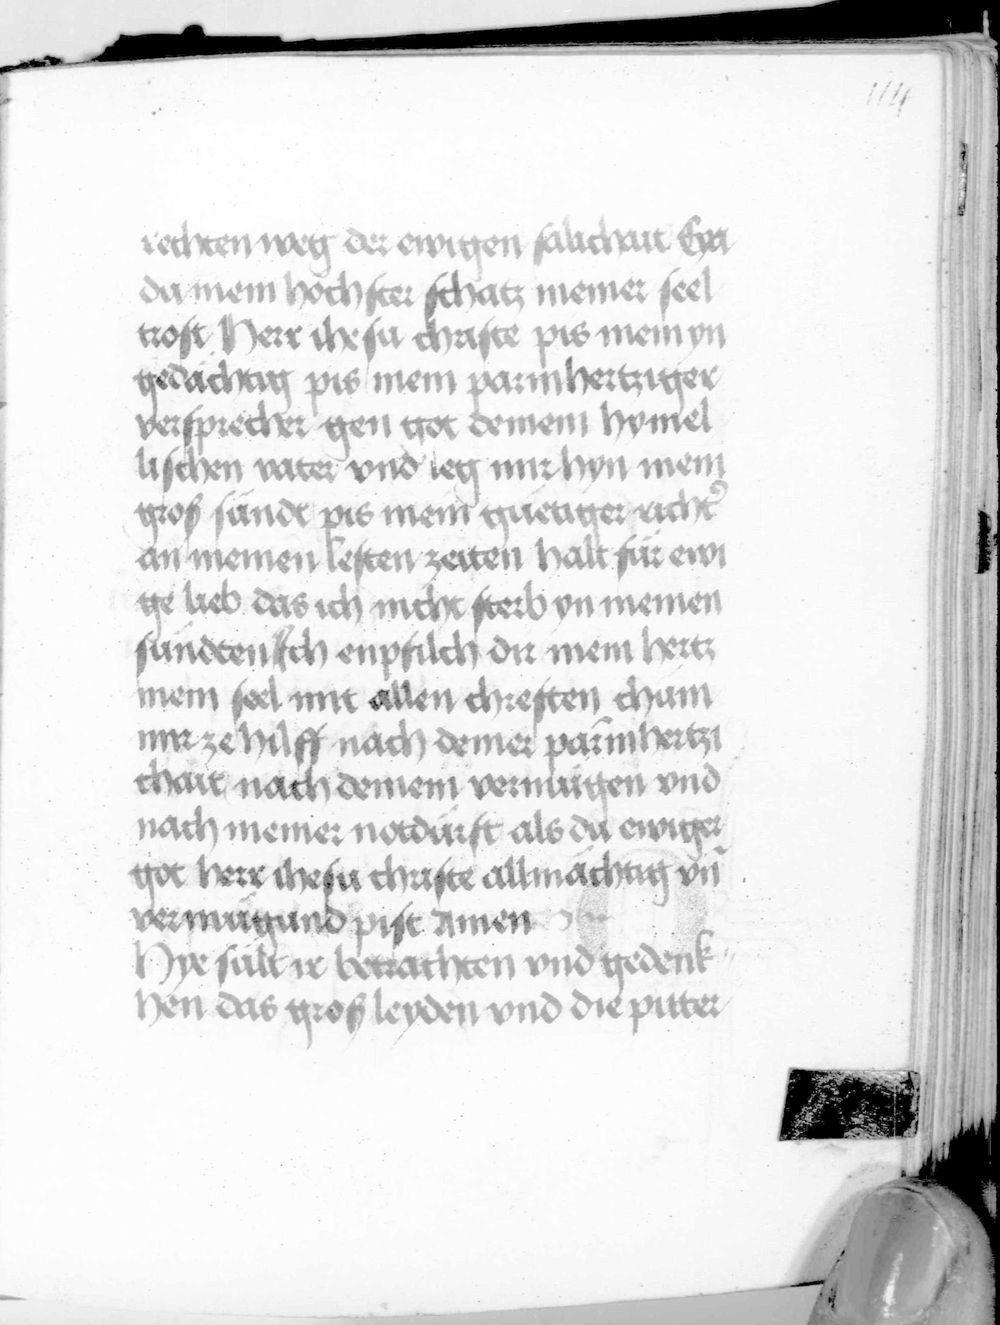 114
rechten weg der ewigen sälichait Eya
du mein höchster schatz meiner seel
trost Herr ihesu christe pis mein yn
gedächtig pis mein parmhertziger
versprecher gen got deinem hymel
lischen vater vnd leg mir hyn mein
groß sündt pis mein güetiger richt᾽
an meinen lesten zeiten halt für ewi
ge lieb das ich nicht sterb yn meinen
sündten Ich enpfilch dir mein hertz
mein seel mit allen chreften chum
mir ze hilff nach deiner parm̄hertzi
chait nach deinem vermügen vnd
nach meiner notdürft als du ewiger
got herr ihesu christe allmächtig vn̄
vermügund pist Amen
Hye sült ir betrachten vnd gedenk
hen das groß leyden vnd die pitter